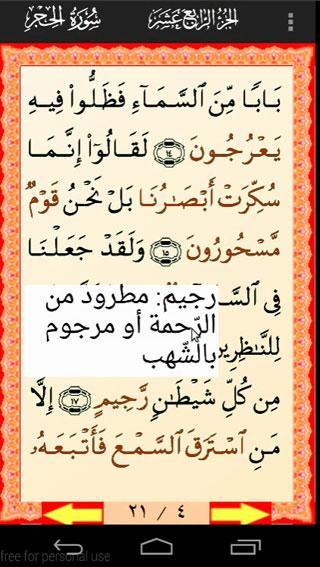 الجُزْءُ الرَّابِعَ عَشَرَ سُورَةُ الحِجْرِ
بَابًا مِّنَ ٱلسَّمَآءِ فَظَلُّوا۟ فِيهِ
يَعْرُجُونَ ١٤ لَقَالُوٓا۟ إِنَّمَا
سُكِّرَتْ أَبْصَـٰرُنَا بَلْ نَحْنُ قَوْمٌ
مَّسْحُورُونَ ١٥ وَلَقَدْ جَعَلْنَا
فِى
رجيم: مطرودٌ من
الرّحمة أو مرجوم
بالشّهب
مِن كُلِّ شَيْطَـٰنٍ رَّجِيمٍ ١٧ إِلَّا
مَنِ ٱسْتَرَقَ ٱلسَّمْعَ فَأَتْبَعَهُۥ
٤ / ٢١
free for personal use